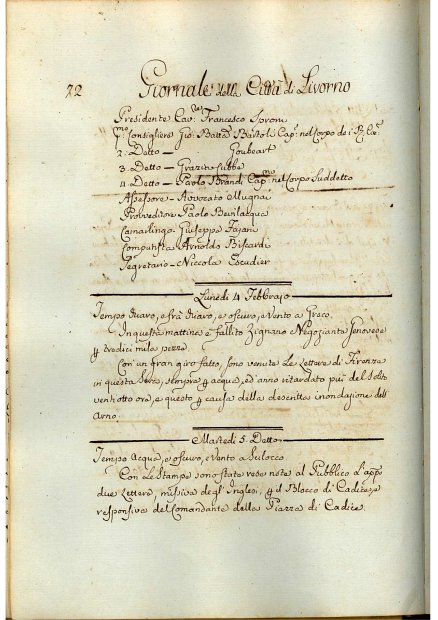 22 Giornale della Città di Livorno
Presidente Cav.re Francesco Sproni
P.mo Consigliere Gio: Batta Bartoli Cap.o nel Corpo de i
2. Detto — Goubeart
3. Detto — Grazit Subbe
4. Detto — Paolo Brandi Cap.no nel Corpo Suddetto
Assessore — Avvocato Mugnai
Provveditore Paolo Bevilacqua
Camarlingo Giuseppe Fajani
Computista Arnoldo Biscardi
Segretario — Niccola Escudier
Lunedì 4 Febbrajo
Tempo Chiaro, e frà Chiaro, e oscuro, e Vento a Greco.
In questa mattina è fallito Zignaro e Negoziante Genovese
p tredici mila pezze.
Con un gran giro fatto, sono venute le lettere di Firenze
in questa sera, sempre p acqua, ed anno ritardato più del solito
vent'otto ore, e questo p causa della descritta inondazione dell'
Arno.
Martedì 5. Detto
Tempo Acqua, e oscuro, e vento a Scilocco.
Con le Stampe sono state rese note al Pubblico l'app.e
due Lettere, missiva degl'Inglesi, p il Blocco di Cadice, e
responsiva del Comandante della Piazza di Cadice.